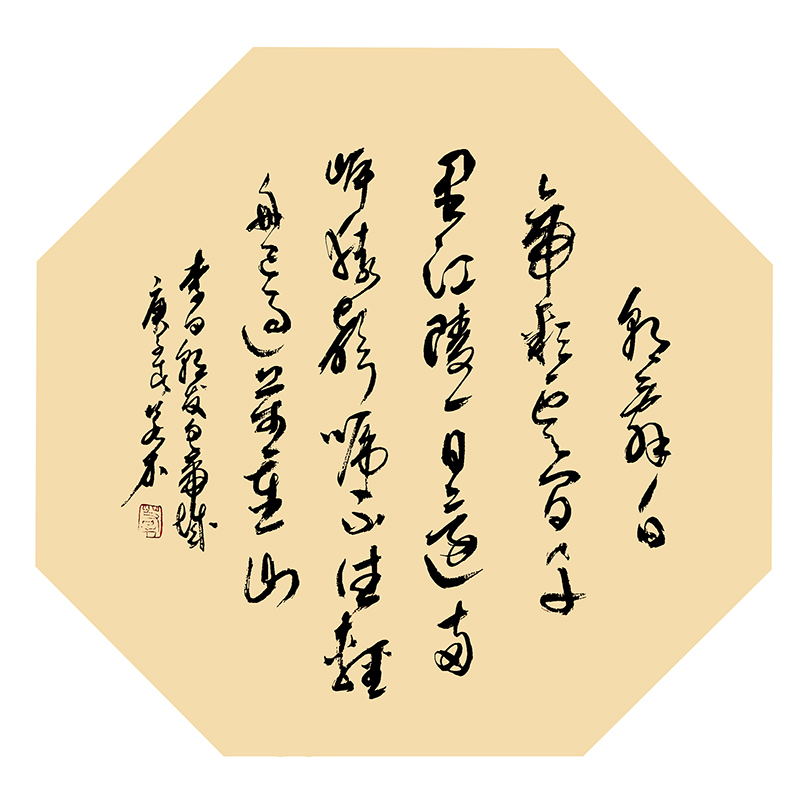 朝辞白
帝彩云间千
里江陵一日还两
岸猿声啼不住轻
舟已过万重山
李白朝发白帝城
庚子